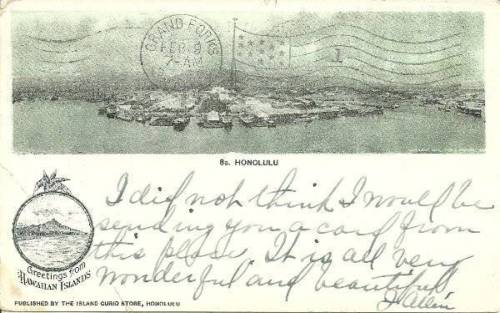 GRAND FORKS
FEB 9
7-AM
1
8a. HONOLULU
I did not think I would be
sending you a card from
this place. It is all very
wonderful and beautiful
Greetings from
HAWAIIAN ISLANDS
PUBLISHED BY THE ISLAND CURIO STORE, HONOLULU